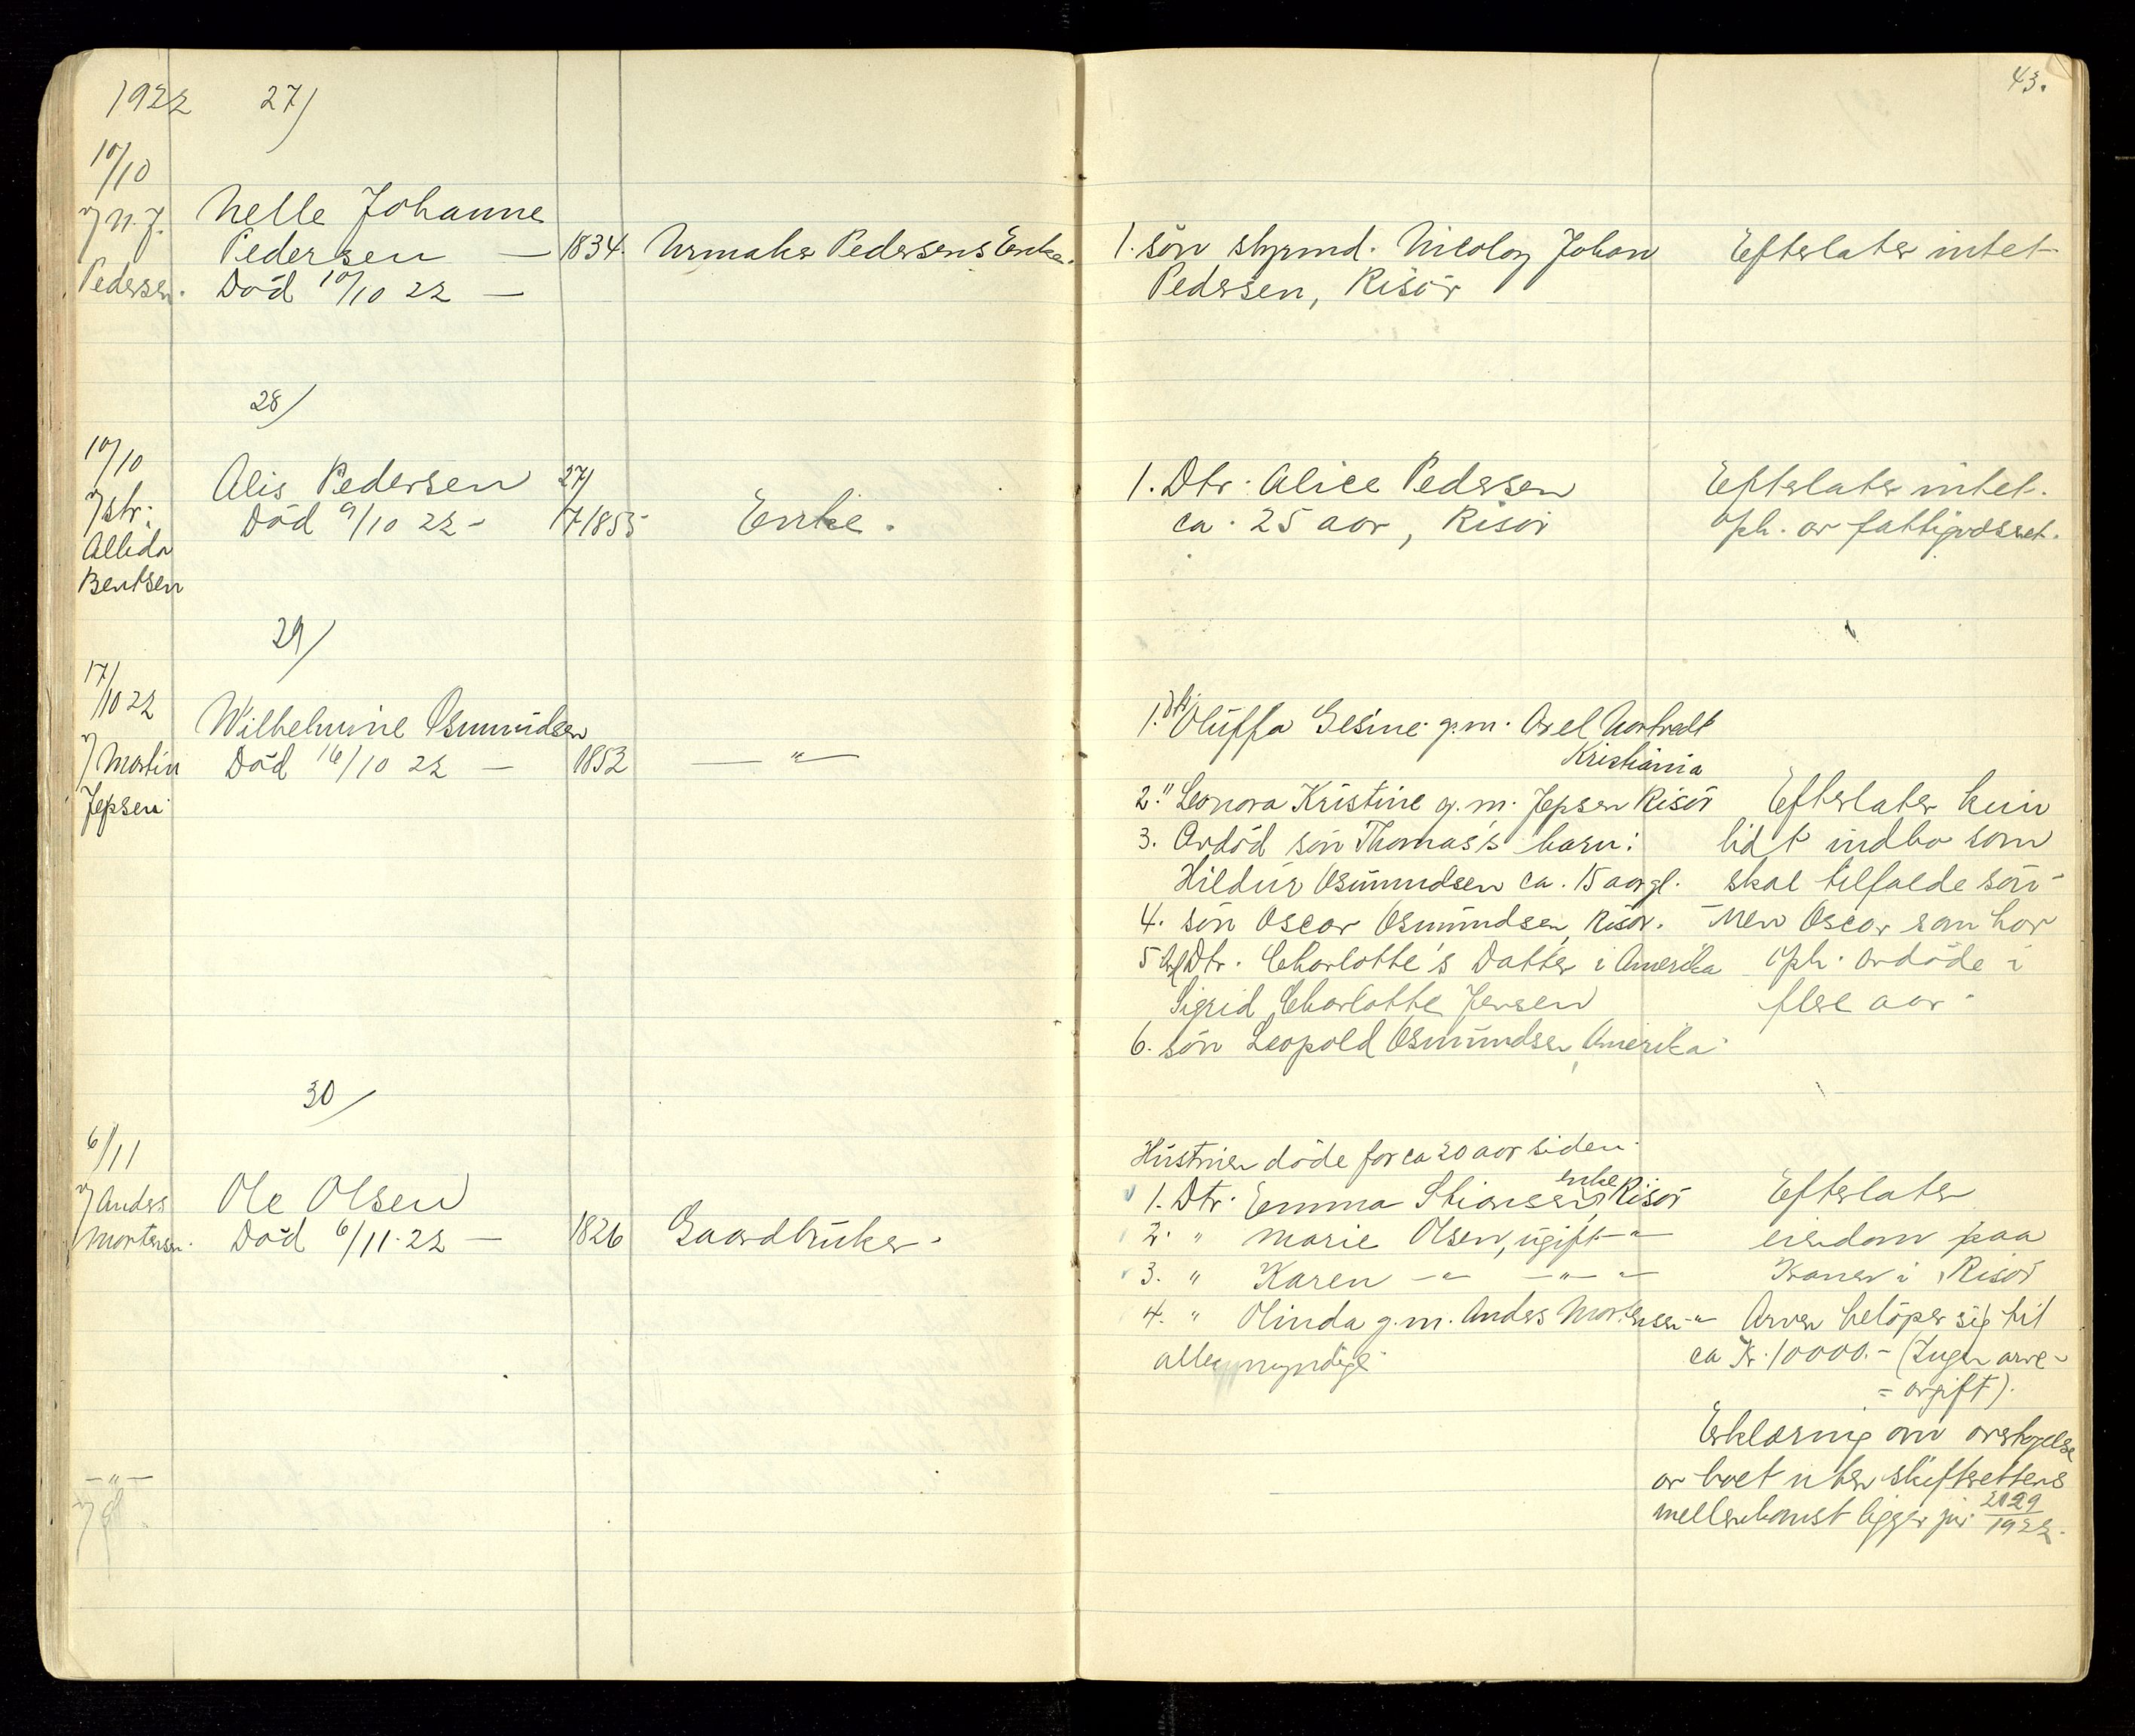 1922 27)
43.
10/10
v/ N. J.
Pedersen.
Nelle Johanne
Pedersen —
Död 10/10 22 —
1834.
Urmaker Pedersens Enke.
1. sön styrmd. Nicolay Johan
Pedersen, Risör
Efterlater intet
28/
10/10
v/ str:
Allida
Bentsen
Alis Pedersen
Död 9/10 22 -
27/
7 1855
Enke.
1. Dtr. Alice Pedersen
ca. 25 aar, Risör
Efterlater intet.
Oph. av fattigvæsnet.
29/
17/
10 22
v/ Martin
Jepsen
Wilhelmine Osmundsen
Död 16/10 22 —
1853
— " —
1. Dtr. Oluffa Gesine g.m. Axel
Kristiania
2. " Leonora Kristine g.m. Jepsen Risör
3. Avdöd sön Thomas's barn:
Hildur Osmundsen ca. 15 aar gl.
4. sön Oscar Osmundsen, Risör.
5. Dtr. Charlotte's Datter i Amerika
Sigrid Charlotte Jensen
6. sön Leopold Osmundsen, Amerika
Efterlater kun
lidt indbo som
skal tilfalde sön-
nen Oscar som har
oph. avdöde i
flere aar.
30/
6/11
v/ Anders
Mortensen.
Ole Olsen
Död 6/11.22 —
1826
Gaardbruker.
Hustruen döde for ca 20 aar siden.
1. Dtr. Emma Stiansen, enke Risör
2. " Marie Olsen, ugift — " —
3. " Karen — " — — " — " —
4. " Olinda g.m. Anders Mortensen - " -
alle myndige
Efterlater
eiendom paa
Kranen i Risör
Arven belöper sig til
ca Kr. 10000.- (Ingen arve-
= avgift).
Erklæring om overtagelse
av boet uten skifterettens
mellemkomst ligger jnr. 2129/1922.
— " —
v/